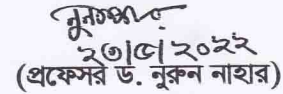 ২৩|৫|২০২২
(প্রফেসর ড. নুরুন নাহার)